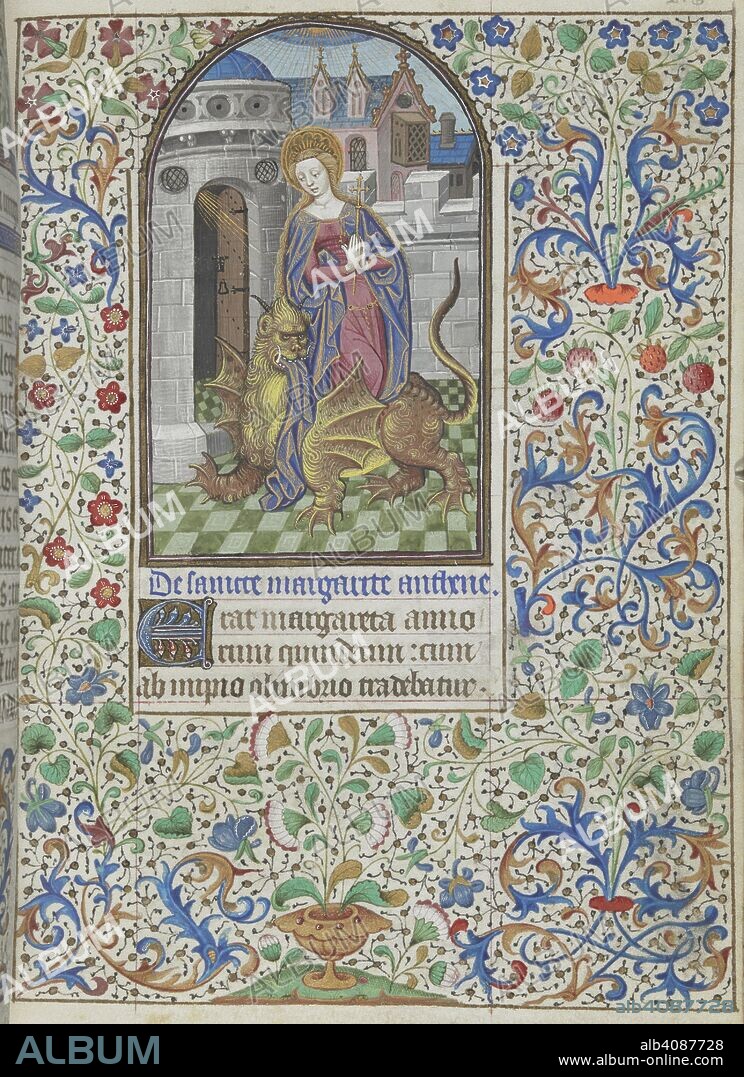 De sancte margarete
Erat margareta anno
rum quindecim : cum
ab impio olimbrio tradebatur.
alb4087728
ALBUM
alb4087728
www.album-online.com